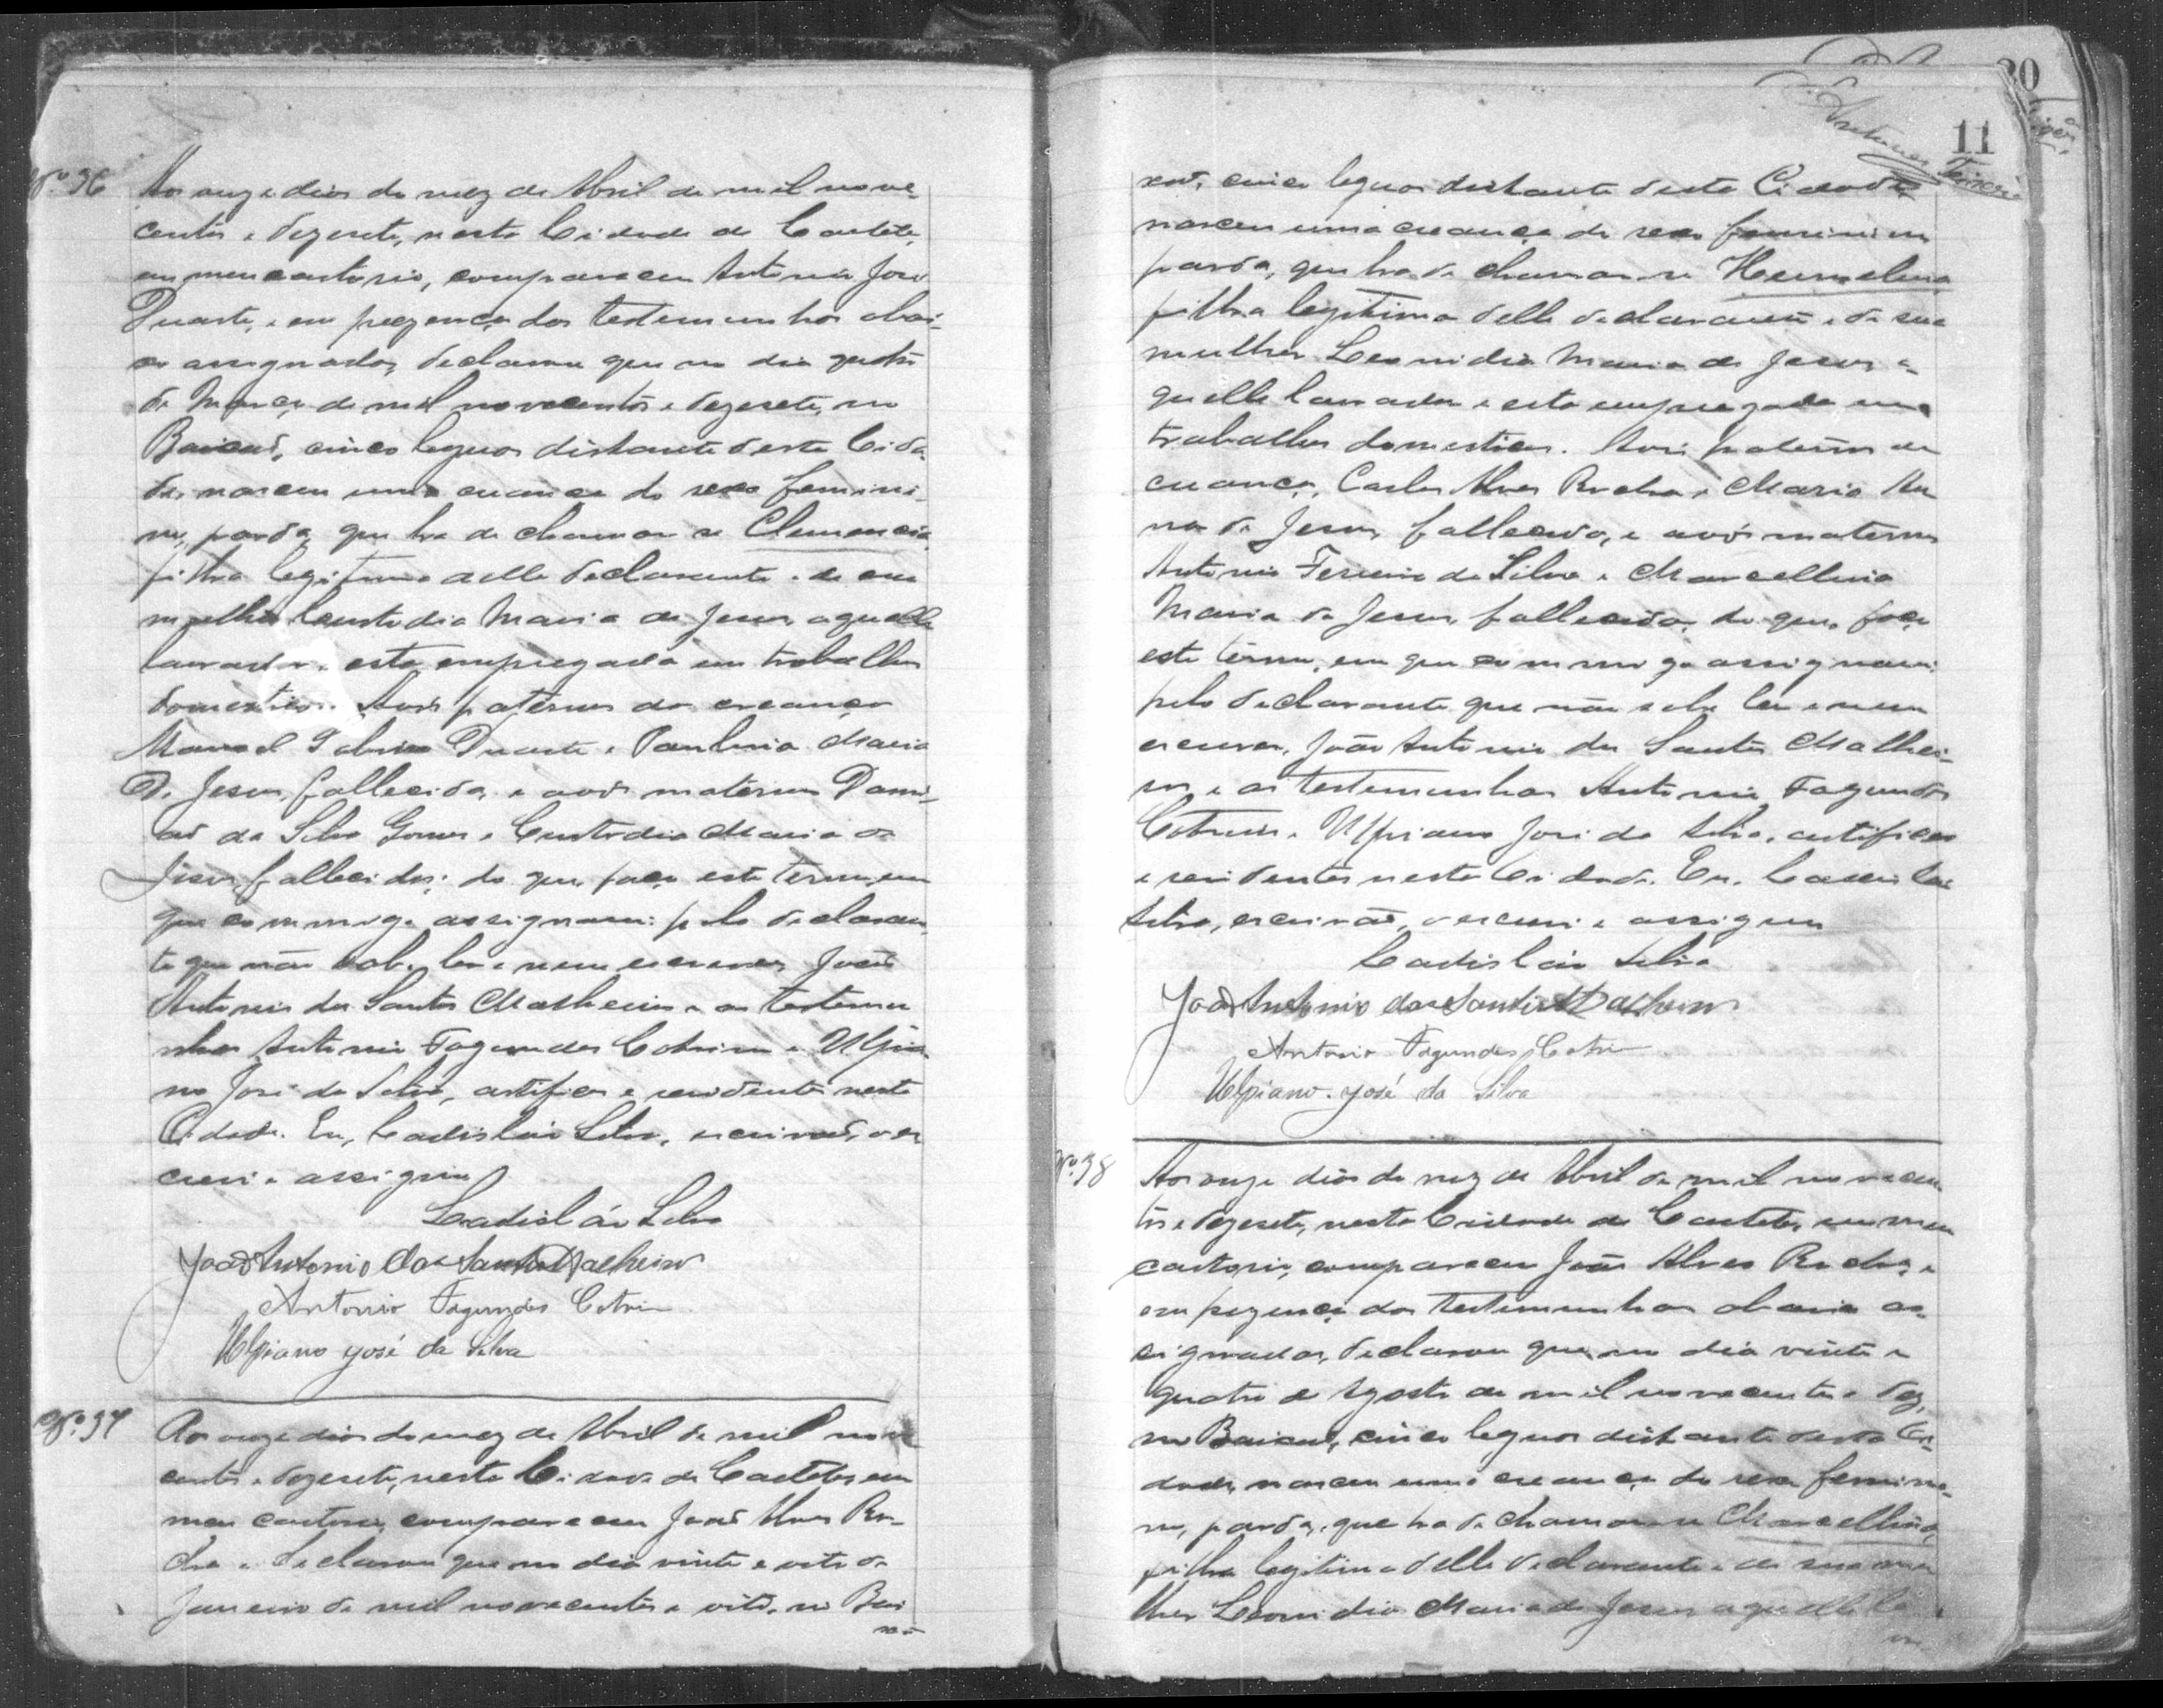 Nº 36
Aos onze dias do mez de Abril de mil nove-
centos e dezesete, nesta Cidade de Caeteté,
em meu cartorio, compareceu Antonio José
Duarte, e em prezença das testemunhas abai-
xo assignadas, declarou que no dia quatro
de Março de mil novecentos e dezesete, no
Baixão, cinco leguas distante desta Cida-
de, nasceu uma creança do sexo femini-
no, parda, que ha de chamar se Clemencia,
filha legitima delle declarante e de sua
mulher Custodia Maria de Jesus, aquelle
lavrador e esta empregada em trabalhos
domesticos. Avós paternos da creança
Manoel Duarte e Paulina Maria
de Jesus, fallecida, e avós maternos Dami-
ão da Silva Gomes e Custodia Maria de
Jesus, fallecidos; do que, faço este termo, em
que commigo assignam: pelo declaran-
te que não sabe ler e nem escrever, João
Antonio dos Santos Malheiros e as testemu-
nhas Antonio Fagundes Cotrim e Ulpia-
no José da Silva, artistas e residentes nesta
Cidade. Eu, Ladisláo Silva, escrivão, o es-
crevi e assigno
Ladisláo Silva
João Antonio dos Santos Malheiros
Antonio Fagundes Cotrim
Ulpiano José da Silva
Nº 37
Aos onze dias do mez de Abril de mil nove
centos e dezesete, nesta Cidade de Caeteté, em
meu cartorio, compareceu João Alves Ro-
cha e declarou que no dia vinte e oito de
Janeiro de mil novecentos e oito, no Bai
xão
20
11
Antonio Teixeira
xão, cinco leguas distante desta Cidade
nasceu uma creança do sexo feminino
parda, que ha de chamar se
filha legitima delle declarante e de sua
mulher Leonidia Maria de Jesus a-
quelle lavrador e esta empregada em
trabalhos domesticos. Avós paternos da
creança, Carlos Alves Rocha e Maria An
na de Jesus, fallecida, e avós maternos
Antonio Ferreira da Silva e Marcellina
Maria de Jesus, fallecida, do que, faço
este termo, em que commigo assignam:
pelo declarante que não sabe ler e nem
escrever, João Antonio dos Santos Malhei-
ros e as testemunhas Antonio Fagundes
Cotrim e Ulpiano José da Silva, artistas
e residentes nesta Cidade. Eu, Ladisláo
Silva, escrivão, o escrevi e assigno
Ladisláo Silva
João Antonio dos Santos Malheiros
Antonio Fagundes Cotrim
Ulpiano José da Silva
Nº 38
Aos onze dias do mez de Abril de mil novecen
tos e dezesete, nesta Cidade de Caeteté, em meu
cartorio, compareceu João Alves Rocha, e
em prezença das testemunhas abaixo as-
signadas, declarou que no dia vinte e
quatro de Agosto de mil novecentos e dez,
no Baixão, cinco leguas distante desta Ci-
dade, nasceu uma creança do sexo femini-
no, parda, que ha de chamar se Marcellina,
filha legitima delle declarante e de sua mu
lher Leonidia Maria de Jesus aquelle la
vra